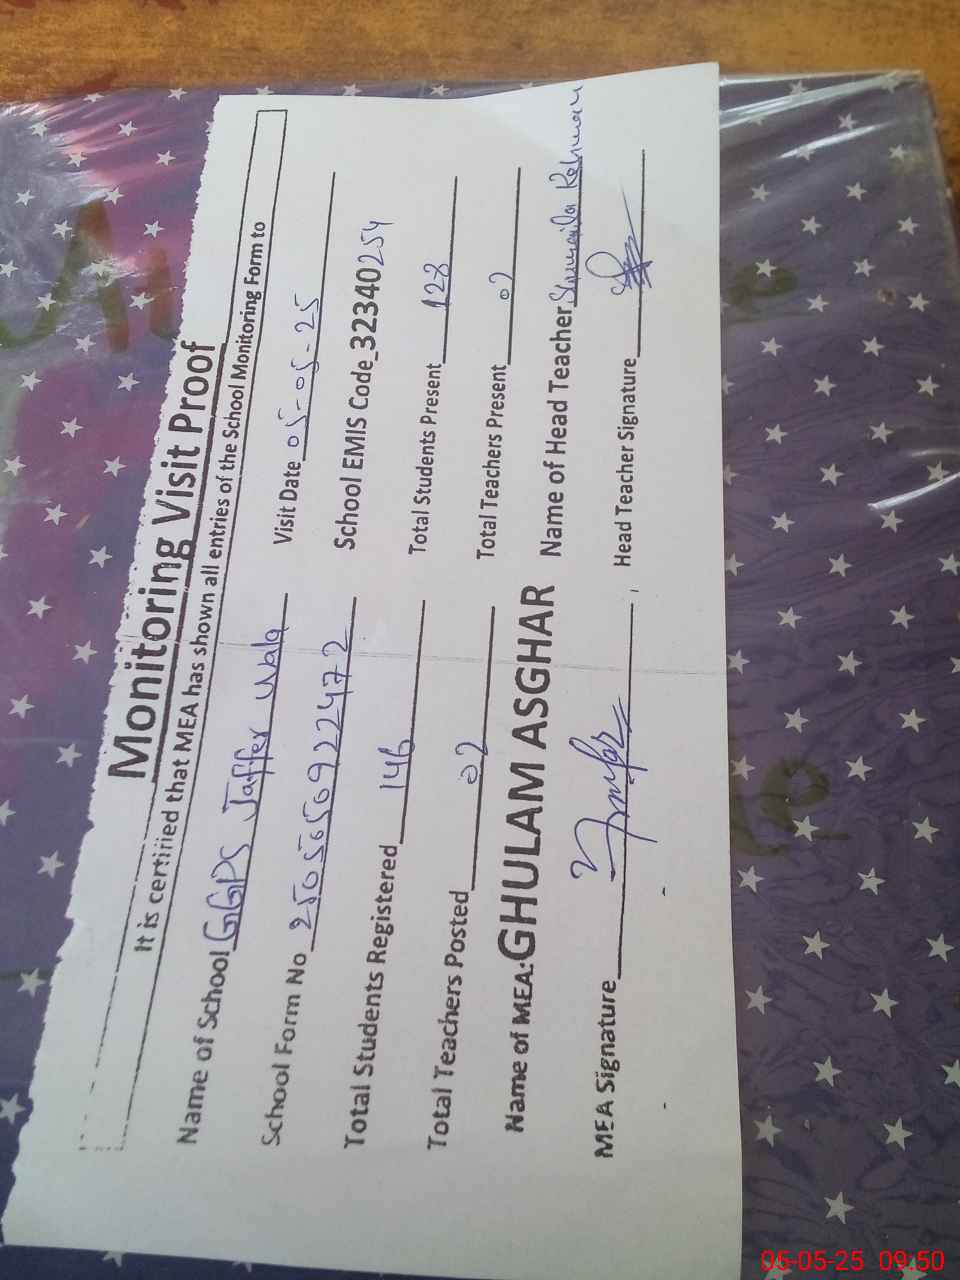 Monitoring Visit Proof
It is certified that MEA has shown all entries of the School Monitoring Form to
Name of School GGPS Jaffer Wala Visit Date 05-05-25
School Form No 2505050922472 School EMIS Code_32340254
Total Students Registered 146 Total Students Present 128
Total Teachers Posted 02 Total Teachers Present 02
Name of MEA: GHULAM ASGHAR Name of Head Teacher Shumaila Rehman
MEA Signature Head Teacher Signature
05-05-25 09:50